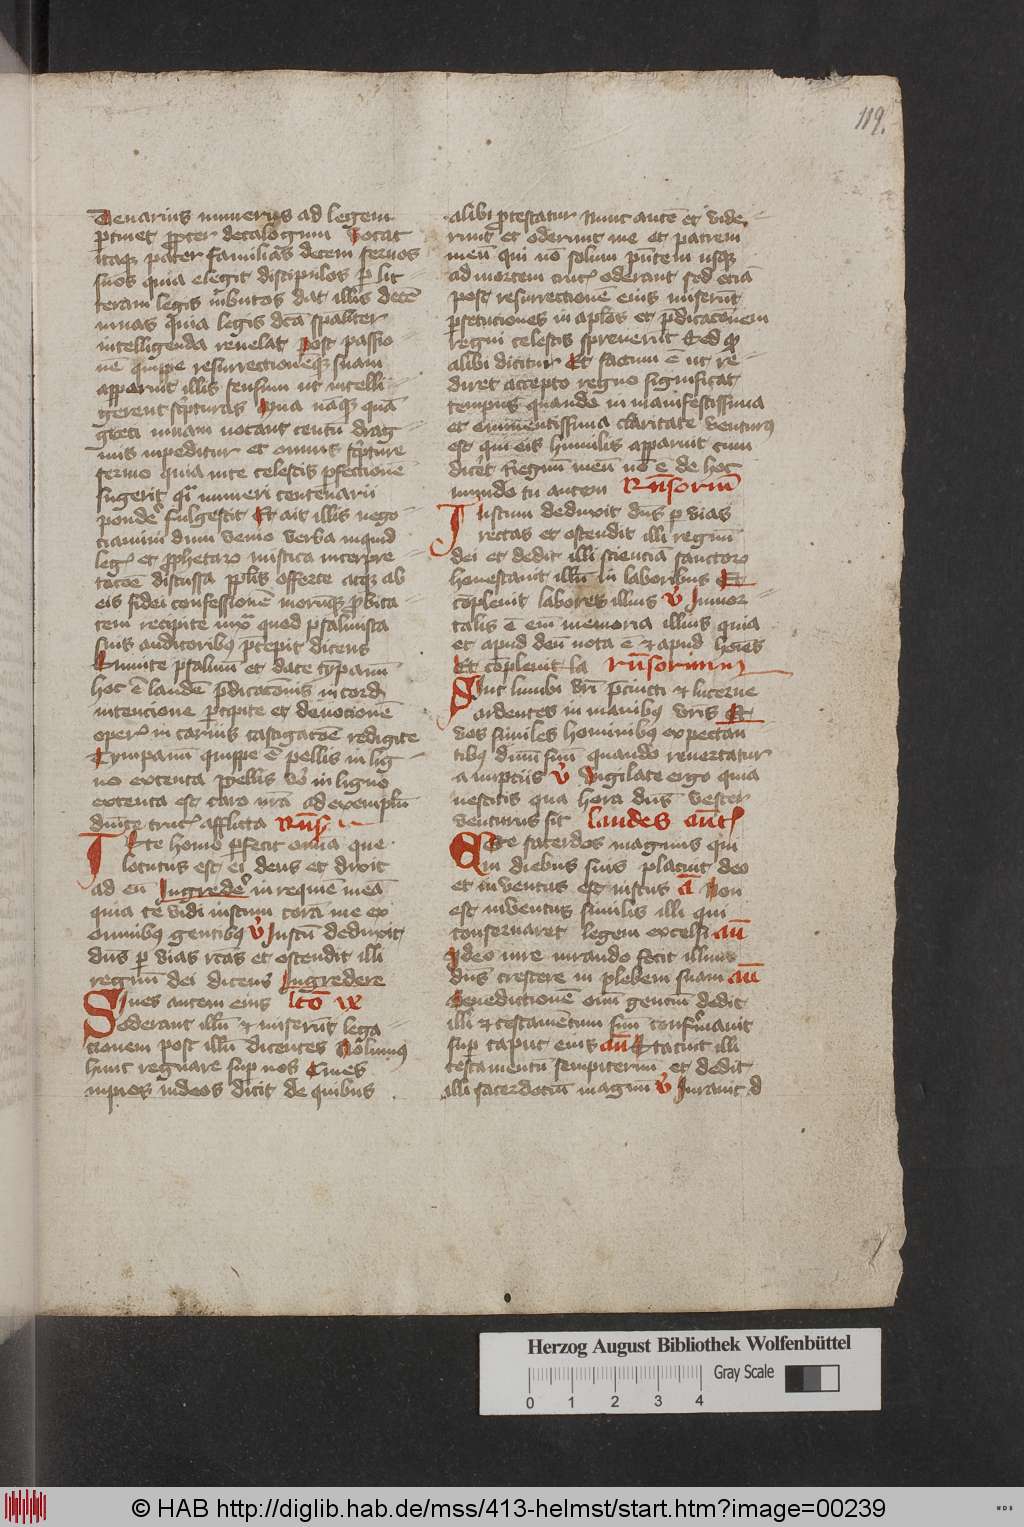 119.
Denarius numerus ad legem
ꝑtinet ꝓpter decalogum Vocat
itaqꝫ pater familias decem seruos
suos quia elegit discipulos ꝑ lit
teram legis
minas quia legis dcā spāliter
intelligenda reuelat post passio
nē quippe resurrectionēqꝫ suam
apparuit illis sensum ut intelli
gerent sc̄pturas Mna nāqꝫ quā
greci mnam vocant centū drag
mis inpeditur et omnis sc̄pture
sermo quia vite celestis ꝑfectionē
sugerit qͣi numeri centenarii
pondeꝰ fulgescit Et ait illis nego
ciamini dum venio verba inquid
legꝭ et ꝓphetarꝝ mistica interpre
tacōe discussa pplīs offerte atqꝫ ab
eis fidei confessionē morūqꝫ ꝓbita
tem recipite iuxͣ quod psalmista
suis auditoribꝰ p̄cepit dicens
Sumite psalmū et date tȳpanū
hoc ē laudē p̄dicacōnis in cordꝭ
intencione ꝑcipite et deuocionē
operꝭ in carnis castigacōe redigite
Tympanū quippe ē pellis in lig
no extenta pellis vͦ in ligno
extenta est caro nr̄a ad exemplū
dn̄ice crucꝭ afflicta Rn̄ſꝭ
Iste homo ꝑfecit omīa que
locutus est ei deus et dixit
ad eū Ingredeꝰ in requiē meā
quia te vidi iustum corā me ex
omnibꝰ gentibꝰ v̓ Iustū deduxit
dn̄s ꝑ vias rcas et ostendit illi
regnū dei dicens Ingredere
Ciues autem eius lc̄o ix
oderant illū et miserūt lega
cionem post illū dicentes Nolumꝰ
hunc regnare suꝑ nos Ciues
inpios iudeos dicit de quibus
alibi ꝓtestatur Nunc autē et vide
runt et oderunt me et patrem
meū qui nō solum p̄ntem usqꝫ
ad mortem crucꝭ oderant sed eciā
post resurrectionē eius miserūt
ꝑsecuciones in aplōs et p̄dicacōnem
regni celestis spreuerūt Sed qͦ
alibi dicitur Et factum ē ut re
diret accepto regno significat
tempus quando in manifestissima
et eminentissima claritate venturꝰ
est qui eis humilis apparuit cum
dicēt Regnū meū nō ē de hoc
mundo tu autem Rn̄sorim̄
Iustum deduxit dn̄s ꝑ vias
rectas et ostendit illi regnū
dei et dedit illi scienciā sanctorꝝ
honestauit illū in laboribus Et
cōpleuit labores illius v̓ Inmor
talis ē em̄ memoria illius quia
et apud deū nota ē et apud hoīes
Et cōpleuit la rn̄sorium
Sint lumbi vr̄i p̄cincti et lucerne
ardentes in manibꝰ vr̄is Et
vos similes hominibꝰ expectan
tibꝰ dn̄m suū quando reuertatur
a nuptiis v̓ Vigilate ergo quia
nescitis qua hora dn̄s vester
venturus sit laudes ant̄ꝭ
Ecce sacerdos magnus qui
in diebus suis placuit deo
et inventus est iustus a̅ Non
est inventus similis illi qui
conseruaret legem excelsi an̄
Ideo iure iurando fecit illum
dn̄s crescere in plebem suam an̄
Benedictionē om̄ gencium dedit
illi et testamentum suū confirmauit
suꝑ caput eius an̄ Statuit illi
testamentū sempiternū et dedit
illi sacerdociū magnū v̓ Iurauit d
Herzog August Bibliothek Wolfenbüttel
Gray Scale
0 1 2 3 4
© HAB http://diglib.hab.de/mss/413-helmst/start.htm?image=00239
WDB